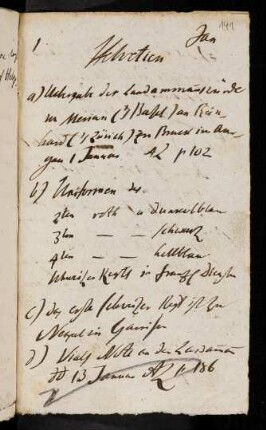 141
1 Jan
13
Helvetien
a) Uebergabe der Landammanswürde
in Merian (v Basel) an Rein-
hard (v Zürich) zu Bruck in Aar-
gau 1 Januar AZ p 102
b) Uniformen des
2ten roth u Dunkelblau
3ten — — schwarz
4ten — — hellblau
Schweizer Regts in franz Diensten
c) Das erste Schweizer Regt ist zu
Neapel in Garnison
d) Note an den Landamman
dd 13 Januar AZ p 186